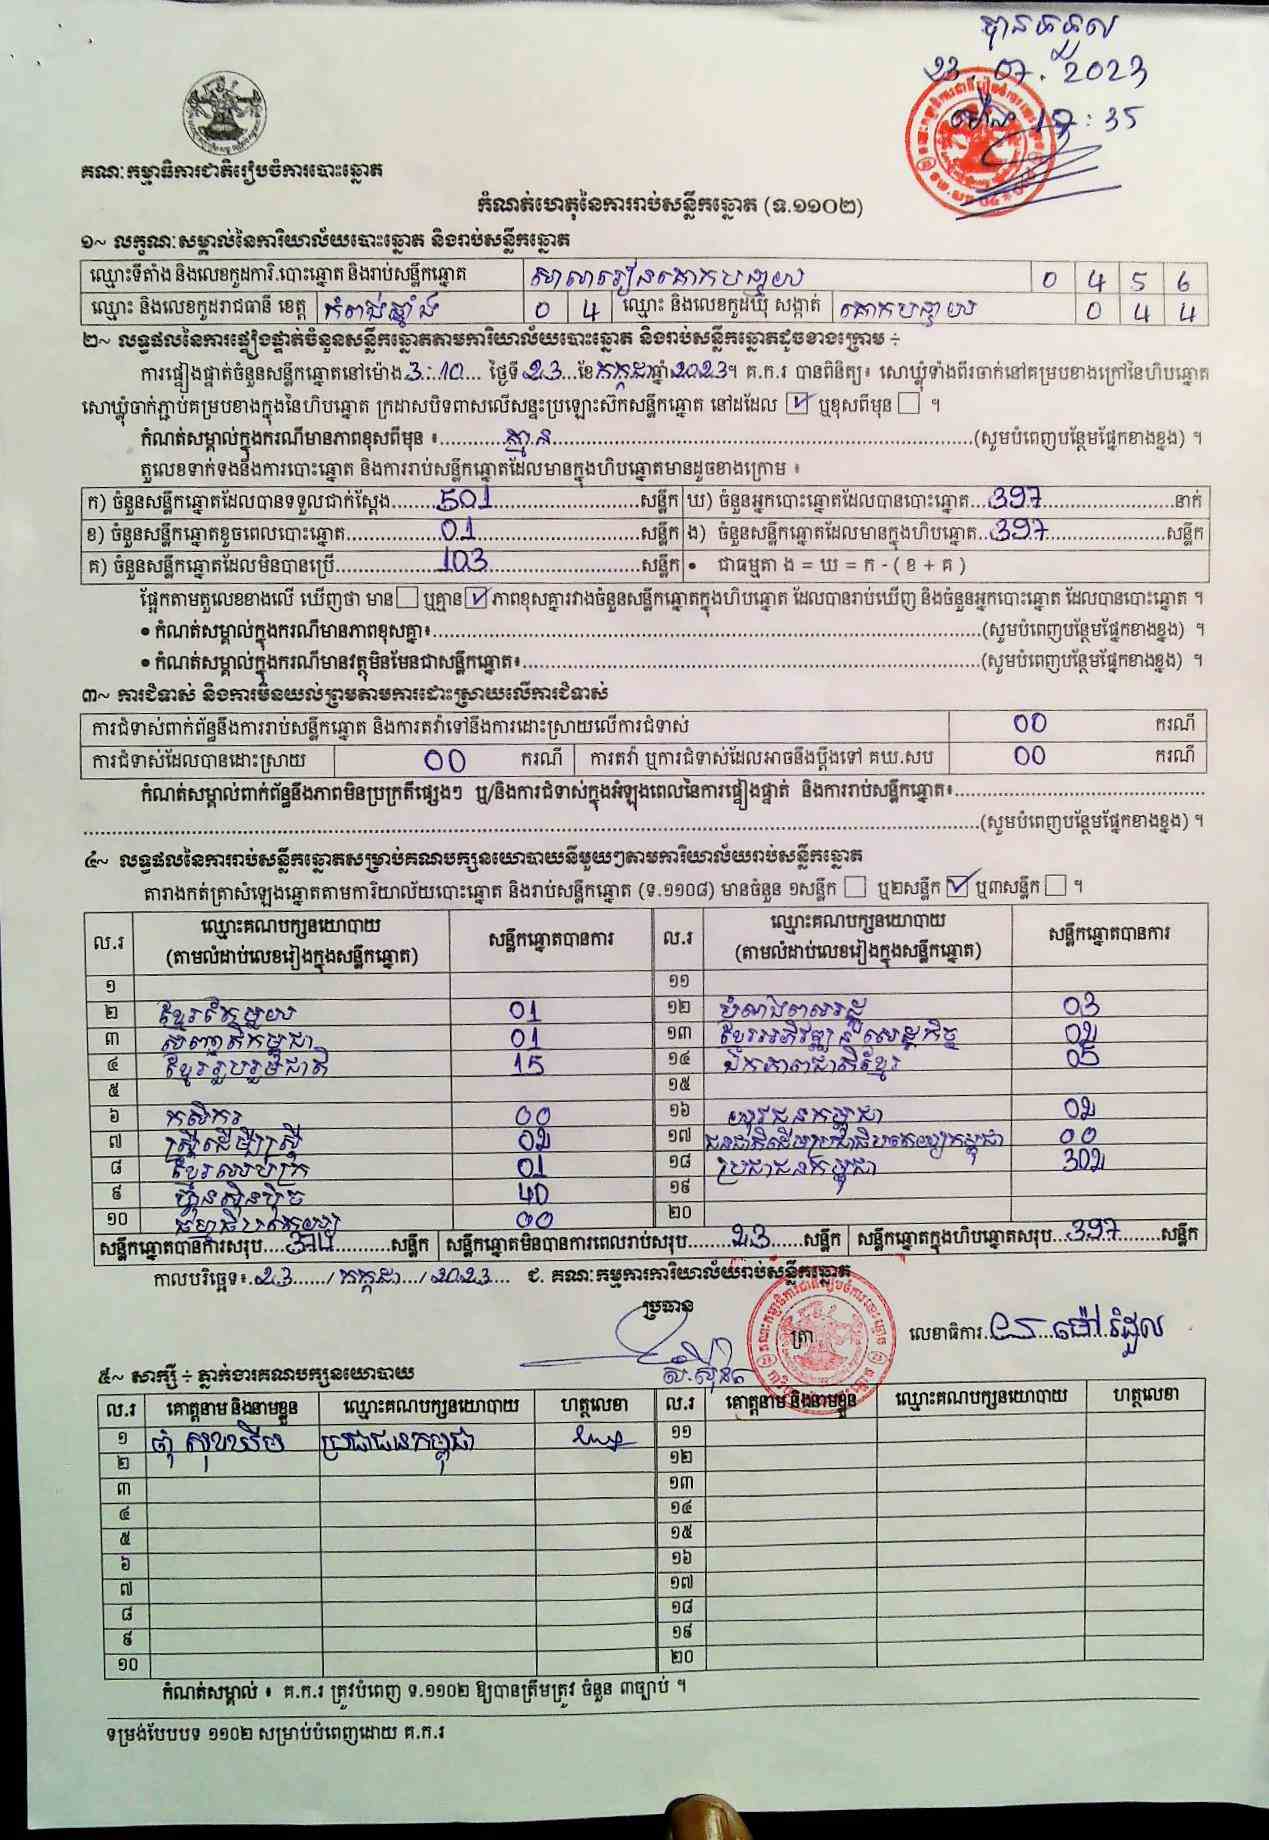 បានទទួល
23.07.2023
ម៉ោង 17:35
គណៈកម្មាធិការជាតិរៀបចំការបោះឆ្នោត
កំណត់ហេតុនៃការរាប់សន្លឹកឆ្នោត (ទ.១១០២)
១~ លក្ខណៈសម្គាល់នៃការិយាល័យបោះឆ្នោត និងរាប់សន្លឹកឆ្នោត
ឈ្មោះទីតាំង និងលេខកូដការិ.បោះឆ្នោត និងរាប់សន្លឹកឆ្នោត សាលារៀនគោកបន្ទាយ 0 4 5 6
ឈ្មោះ និងលេខកូដរាជធានី ខេត្ត កំពង់ឆ្នាំង 0 4 ឈ្មោះ និងលេខកូដឃុំ សង្កាត់ គោកបន្ទាយ 0 4 4
២~ លទ្ធផលនៃការផ្ទៀងផ្ទាត់ចំនួនសន្លឹកឆ្នោតតាមការិយាល័យបោះឆ្នោត និងរាប់សន្លឹកឆ្នោតដូចខាងក្រោម ÷
ការផ្ទៀងផ្ទាត់ចំនួនសន្លឹកឆ្នោតនៅម៉ោង 3:10 ថ្ងៃទី 23 ខែ កក្កដា ឆ្នាំ 2023។ គ.ក.រ បានពិនិត្យ៖ សោឃ្លុំទាំងពីរចាក់នៅគម្របខាងក្រៅនៃហិបឆ្នោត
សោឃ្លុំចាក់ភ្ជាប់គម្របខាងក្នុងនៃហិបឆ្នោត ក្រដាសបិទពាសលើសន្ទះប្រឡោះស៊កសន្លឹកឆ្នោត នៅដដែល ☑ ឬខុសពីមុន ☐ ។
កំណត់សម្គាល់ក្នុងករណីមានភាពខុសពីមុន ៖ គ្មាន (សូមបំពេញបន្ថែមផ្នែកខាងខ្នង) ។
តួលេខទាក់ទងនឹងការបោះឆ្នោត និងការរាប់សន្លឹកឆ្នោតដែលមានក្នុងហិបឆ្នោតមានដូចខាងក្រោម ៖
ក) ចំនួនសន្លឹកឆ្នោតដែលបានទទួលជាក់ស្ដែង 501 សន្លឹក ឃ) ចំនួនអ្នកបោះឆ្នោតដែលបានបោះឆ្នោត 397 នាក់
ខ) ចំនួនសន្លឹកឆ្នោតខូចពេលបោះឆ្នោត 01 សន្លឹក ង) ចំនួនសន្លឹកឆ្នោតដែលមានក្នុងហិបឆ្នោត 397 សន្លឹក
គ) ចំនួនសន្លឹកឆ្នោតដែលមិនបានប្រើ 103 សន្លឹក • ជាធម្មតា ង = ឃ = ក - ( ខ + គ )
ផ្អែកតាមតួលេខខាងលើ ឃើញថា មាន ☐ ឬគ្មាន ☑ ភាពខុសគ្នារវាងចំនួនសន្លឹកឆ្នោតក្នុងហិបឆ្នោត ដែលបានរាប់ឃើញ និងចំនួនអ្នកបោះឆ្នោត ដែលបានបោះឆ្នោត ។
• កំណត់សម្គាល់ក្នុងករណីមានភាពខុសគ្នា៖ (សូមបំពេញបន្ថែមផ្នែកខាងខ្នង) ។
• កំណត់សម្គាល់ក្នុងករណីមានវត្ថុមិនមែនជាសន្លឹកឆ្នោត៖ (សូមបំពេញបន្ថែមផ្នែកខាងខ្នង) ។
៣~ ការជំទាស់ និងការមិនយល់ព្រមតាមការដោះស្រាយលើការជំទាស់
ការជំទាស់ពាក់ព័ន្ធនឹងការរាប់សន្លឹកឆ្នោត និងការតវ៉ាទៅនឹងការដោះស្រាយលើការជំទាស់ 00 ករណី
ការជំទាស់ដែលបានដោះស្រាយ 00 ករណី ការតវ៉ា ឬការជំទាស់ដែលអាចនឹងប្ដឹងទៅ គឃ.សប 00 ករណី
កំណត់សម្គាល់ពាក់ព័ន្ធនឹងភាពមិនប្រក្រតីផ្សេងៗ ឬ/និងការជំទាស់ក្នុងអំឡុងពេលនៃការផ្ទៀងផ្ទាត់ និងការរាប់សន្លឹកឆ្នោត៖
(សូមបំពេញបន្ថែមផ្នែកខាងខ្នង) ។
៤~ លទ្ធផលនៃការរាប់សន្លឹកឆ្នោតសម្រាប់គណបក្សនយោបាយនីមួយៗតាមការិយាល័យរាប់សន្លឹកឆ្នោត
តារាងកត់ត្រាសំឡេងឆ្នោតតាមការិយាល័យបោះឆ្នោត និងរាប់សន្លឹកឆ្នោត (ទ.១១០៨) មានចំនួន ១សន្លឹក ☐ ឬ២សន្លឹក ☑ ឬ៣សន្លឹក ☐ ។
ល.រ ឈ្មោះគណបក្សនយោបាយ (តាមលំដាប់លេខរៀងក្នុងសន្លឹកឆ្នោត) សន្លឹកឆ្នោតបានការ ល.រ ឈ្មោះគណបក្សនយោបាយ (តាមលំដាប់លេខរៀងក្នុងសន្លឹកឆ្នោត) សន្លឹកឆ្នោតបានការ
១ ១១
២ ខ្មែរតែមួយ 01 ១២ បំណងពលរដ្ឋ 03
៣ សញ្ជាតិកម្ពុជា 01 ១៣ ខ្មែរអភិវឌ្ឍន៍សេដ្ឋកិច្ច 02
៤ ខ្មែររួបរួមជាតិ 15 ១៤ ឯកភាពជាតិខ្មែរ 05
៥ ១៥
៦ កសិករ 00 ១៦ យុវជនកម្ពុជា 02
៧ ស្ត្រីដើម្បីស្ត្រី 02 ១៧ ជនជាតិដើមប្រជាធិបតេយ្យកម្ពុជា 00
៨ ខ្មែរឈប់ក្រ 01 ១៨ ប្រជាជនកម្ពុជា 302
៩ ហ៊្វុនស៊ិនប៉ិច 40 ១៩
១០ ធម្មាធិបតេយ្យ 00 ២០
សន្លឹកឆ្នោតបានការសរុប 374 សន្លឹក សន្លឹកឆ្នោតមិនបានការពេលរាប់សរុប 23 សន្លឹក សន្លឹកឆ្នោតក្នុងហិបឆ្នោតសរុប 397 សន្លឹក
កាលបរិច្ឆេទ៖ 23 / កក្កដា / 2023 ជ. គណៈកម្មការការិយាល័យរាប់សន្លឹកឆ្នោត
ប្រធាន ត្រា លេខាធិការ
៥~ សាក្សី ÷ ភ្នាក់ងារគណបក្សនយោបាយ
ល.រ គោត្តនាម និងនាមខ្លួន ឈ្មោះគណបក្សនយោបាយ ហត្ថលេខា ល.រ គោត្តនាម និងនាមខ្លួន ឈ្មោះគណបក្សនយោបាយ ហត្ថលេខា
១ ប្រជាជនកម្ពុជា ១១
២ ១២
៣ ១៣
៤ ១៤
៥ ១៥
៦ ១៦
៧ ១៧
៨ ១៨
៩ ១៩
១០ ២០
កំណត់សម្គាល់ ៖ គ.ក.រ ត្រូវបំពេញ ទ.១១០២ ឱ្យបានត្រឹមត្រូវ ចំនួន ៣ច្បាប់ ។
ទម្រង់បែបបទ ១១០២ សម្រាប់បំពេញដោយ គ.ក.រ